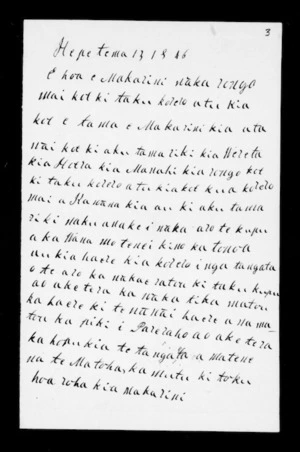 3
Hepetema 13 1846
E hoa e Makarini waka rongo
mai koe ki taku korero atu kia
koe e ta ma e Makarini kia ata
wai koe ki aku tamariki kia Wereta
kia Hotea kia Manahi kia rongo koe
ki taku korero atu kia koe kua korero
mai a Kawana kia au ki aku tama
riki naku anake i waka aro te kupu
a ka mo tenei kino ka tonoa
au kia haere kia korero i nga tangata
o te aro ka waka ratou ki taku kupu
ao ake tera ka waka tika matou
ka haere ki te haere a na ma
tou ka piki i Pareraho ao ake tera
ka hopukia te tangata a matene
na te Matoha, ka mutu ki toku
hoa roha kia Makarini